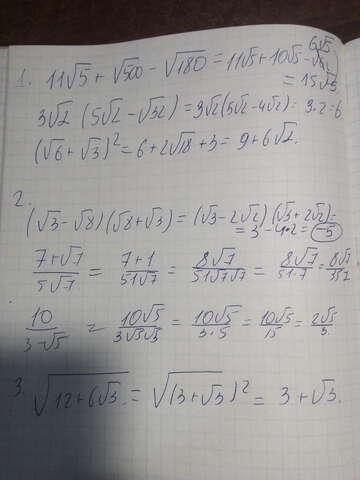 6√5
1. 11√5 + √500 - √180 = 11√5 + 10√5 -
= 15√5.
3√2 (5√2 - √32) = 3√2(5√2 - 4√2) = 3·2 = 6
(√6 + √3)² = 6 + 2√18 + 3 = 9 + 6√2.
2.
(√3 - √8)(√8 + √3) = (√3 - 2√2)(√3 + 2√2) =
= 3 - 4·2 = -5
7+√7/5√7 = 7+1/51√7 = 8√7/51√7√7 = 8√7/51·7 =
10/3-√5 = 10√5/3√5√5 = 10√5/3·5 = 10√5/15 = 2√5/3.
3. √12+6√3 = √(3+√3)² = 3 + √3.